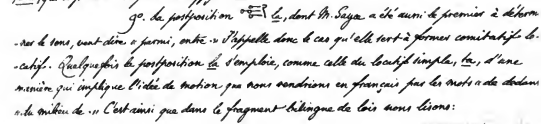 9º. La postposition 𒁕 la, dont M. Sayce a été aussi le premier à déterm
-ner le sens, veut dire « parmi, entre. » J'appelle donc le cas qu'elle sert à former comitatif lo-
-catif. Quelquefois la postposition la s'emploie, comme celle du locatif simple, ta, d'une
manière qui implique l'idée de motion que nous rendrions en français par les mots « de dedans
« du milieu de » C'est ainsi que dans le fragment bilingue de lois nous lisons :